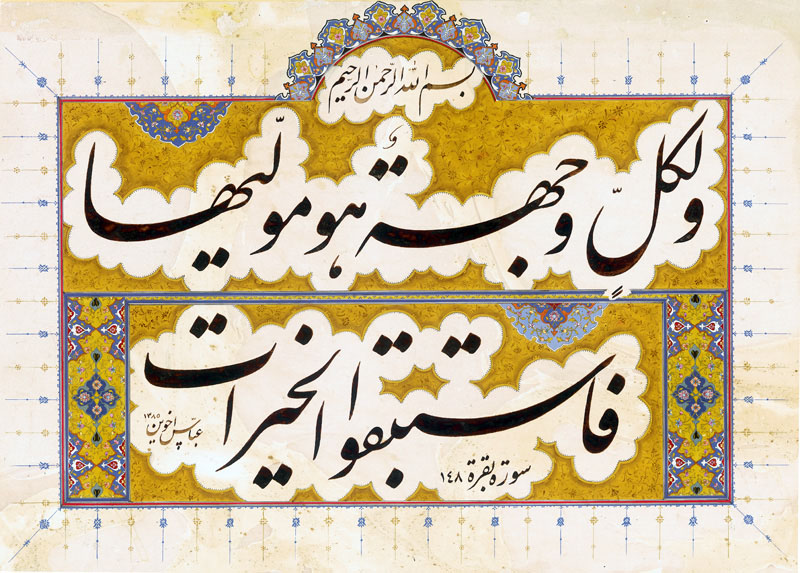 بسم الله الرحمن الرحیم
ولکلٍّ وجهةٌ هو مولّیها
فاستبقوا الخیرات
سورة بقرة ١٤٨
عباس اخوین ١٣٨٥